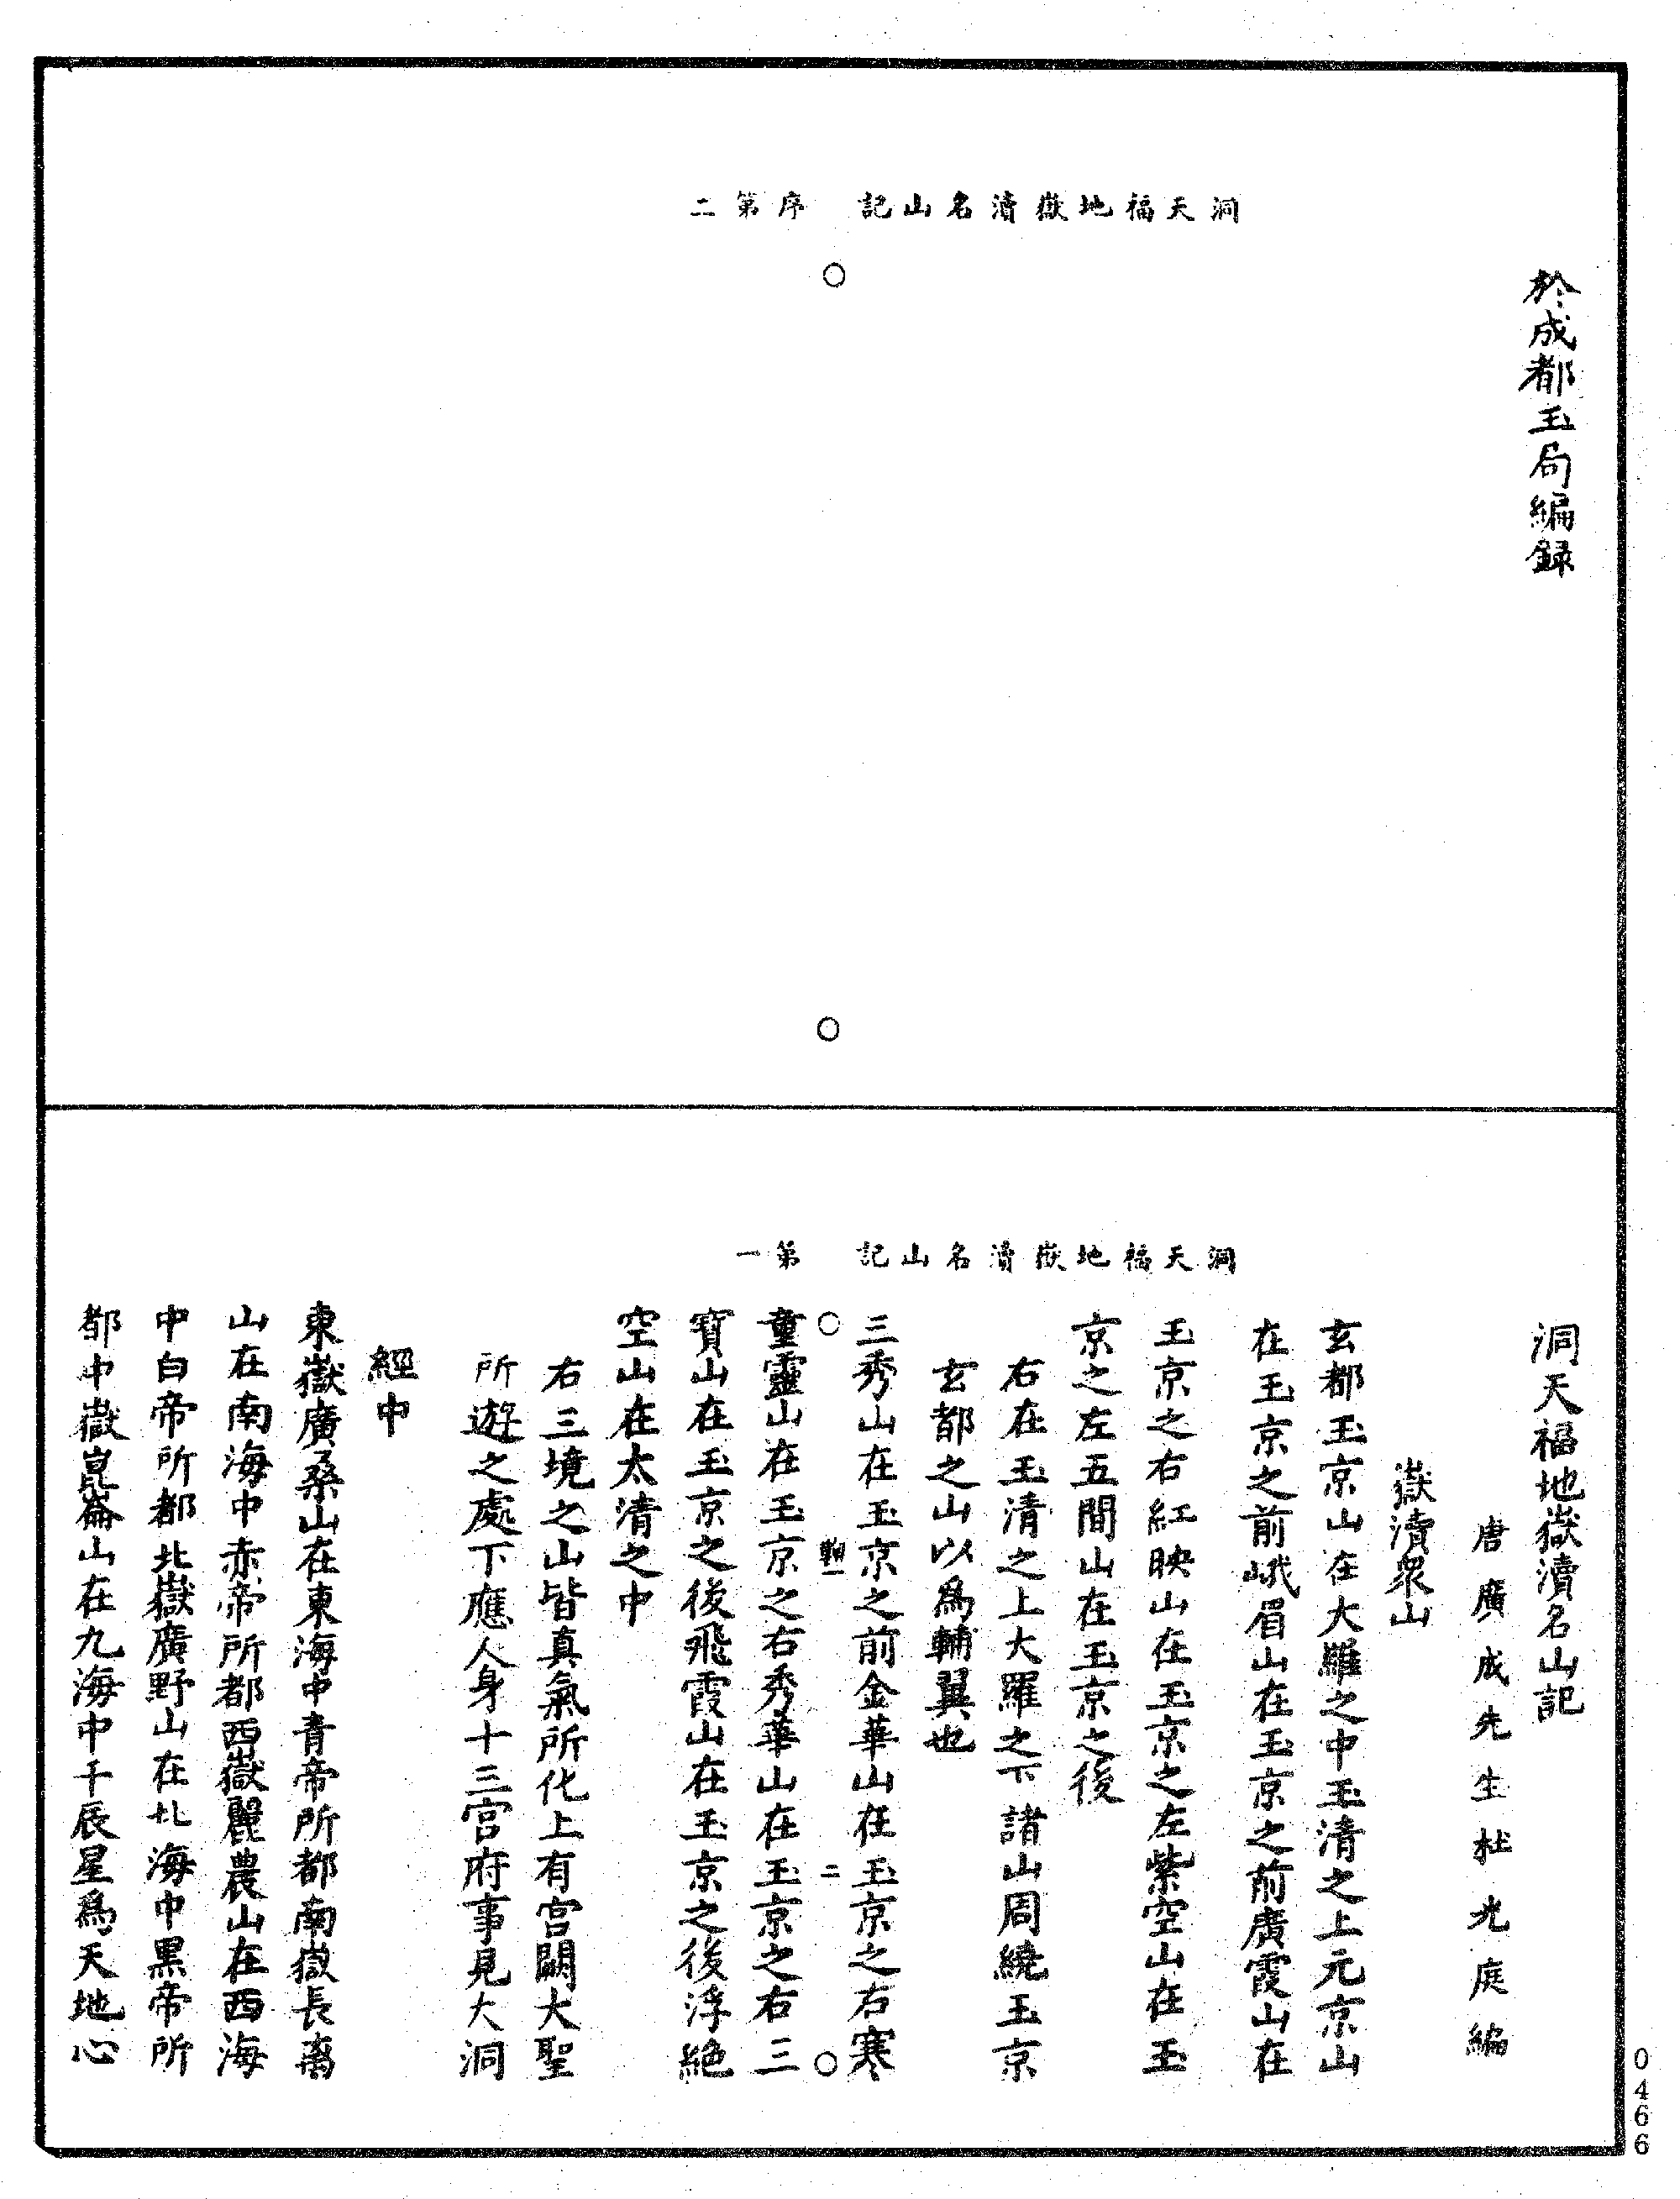 洞天福地嶽瀆名山記　序第二
於成都玉局編録
洞天福地嶽瀆名山記　第一
洞天福地嶽瀆名山記
唐廣成先生杜光庭編
嶽瀆衆山
玄都玉京山在大羅之中玉清之上元京山
在玉京之前峨眉山在玉京之前廣霞山在
玉京之右紅映山在玉京之左紫空山在玉
京之左五間山在玉京之後
右在玉清之上大羅之下諸山周繞玉京
玄都之山以爲輔翼也
三秀山在玉京之前金華山在玉京之右寒
二
童靈山在玉京之右秀華山在玉京之右三
寶山在玉京之後飛霞山在玉京之後浮絶
空山在太清之中
右三境之山皆真氣所化上有宫闕大聖
所遊之處下應人身十三宫府事見大洞
經中
東嶽廣桑山在東海中青帝所都南嶽長离
山在南海中赤帝所都西嶽麗農山在西海
中白帝所都北嶽廣野山在北海中黒帝所
都中嶽崑崙山在九海中千辰星爲天地心
0466